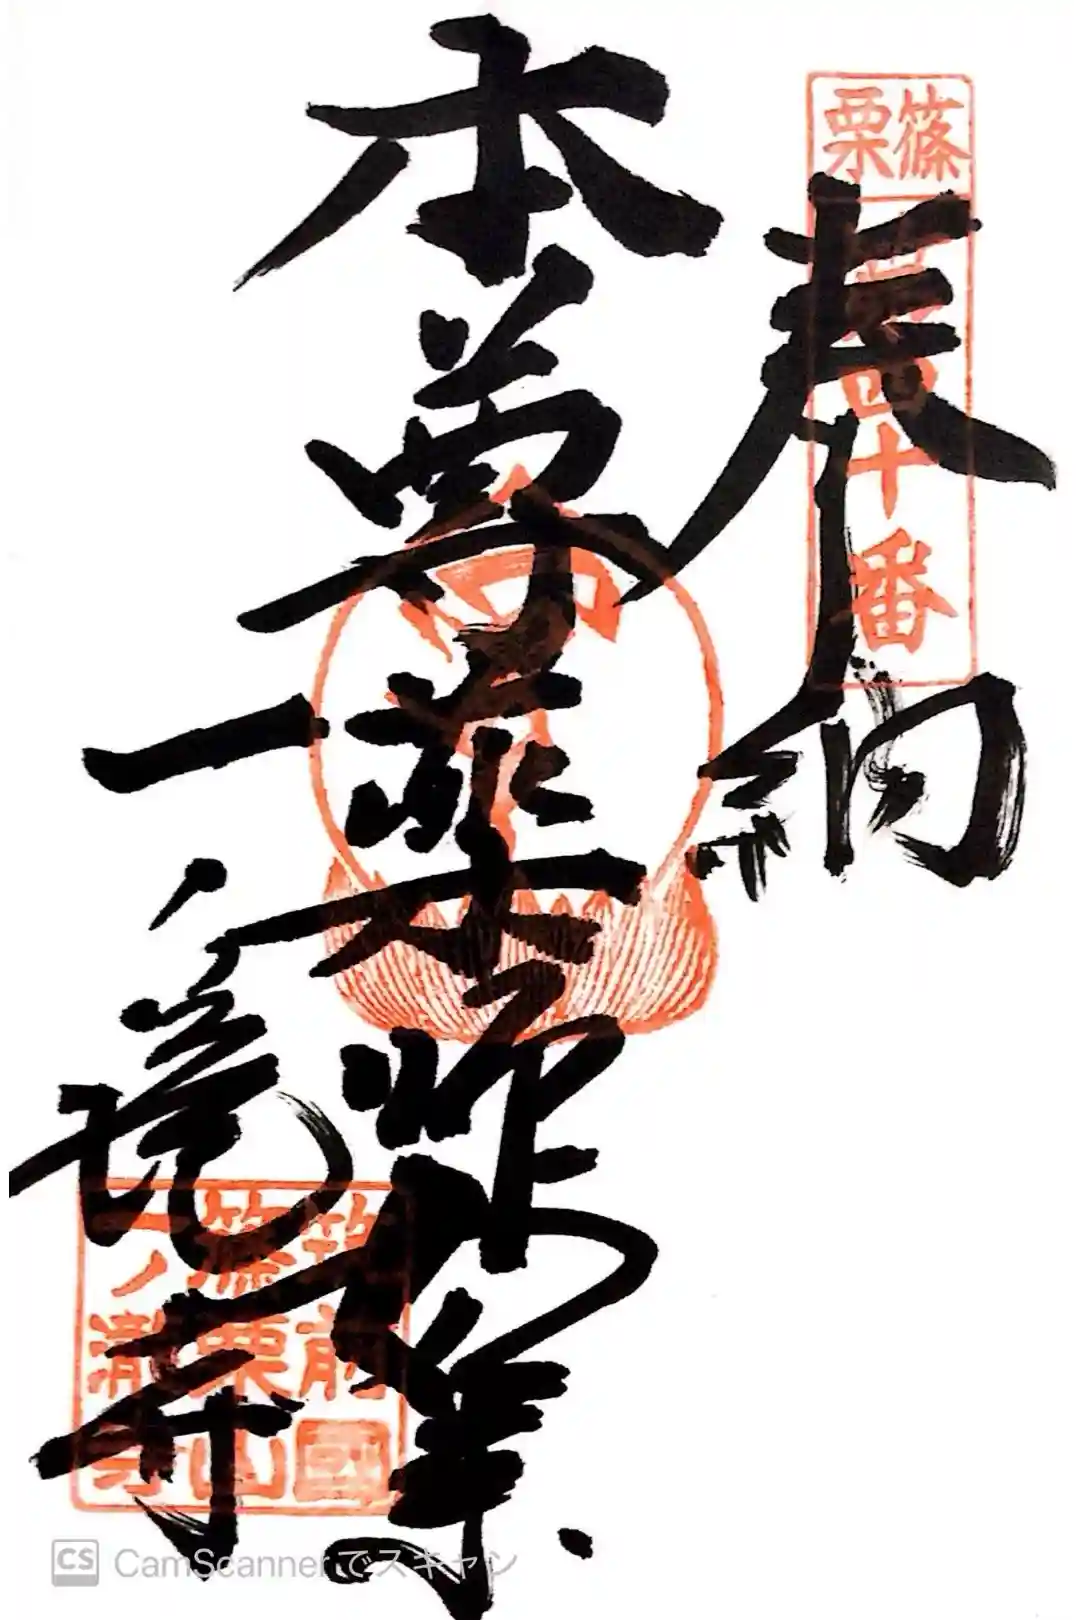 奉納
篠栗
第四十番
本尊薬師如来
一ノ瀧寺
筑前國
篠栗山
一ノ瀧寺
CS CamScannerでスキャン